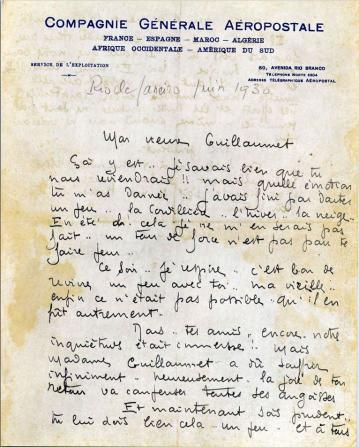 COMPAGNIE GÉNÉRALE AÉROPOSTALE
FRANCE — ESPAGNE — MAROC — ALGÉRIE
AFRIQUE OCCIDENTALE — AMÉRIQUE DU SUD
SERVICE DE L'EXPLOITATION
50, AVENIDA RIO BRANCO
TELEPHONE NORTE 6904
ADRESSE TÉLÉGRAPHIQUE AÉROPOSTAL
Rio de Janeiro juin 1930
Mon vieux Guillaumet
Ça y est .. je savais bien que tu
nous reviendrais !! mais quelle émotion
tu m'as donnée .. j'avais fini par douter
un peu .. la Cordillère .. l'hiver .. la neige.
En été .. cela je ne m'en serais pas
fait .. un tour de force n'est pas pour te
faire peur ..
Ce soir .. je respire .. c'est bon de
revivre un peu avec toi .. ma vieille ..
enfin ce n'était pas possible qu'il en
fût autrement.
Mais .. tes amis, encore notre
inquiétude était immense !! Mais
Madame Guillaumet a dû souffrir
infiniment .. heureusement la joie de ton
retour va compenser toutes ses angoisses
Et maintenant sois prudent.
tu lui dois bien cela .. un peu .. et à tous